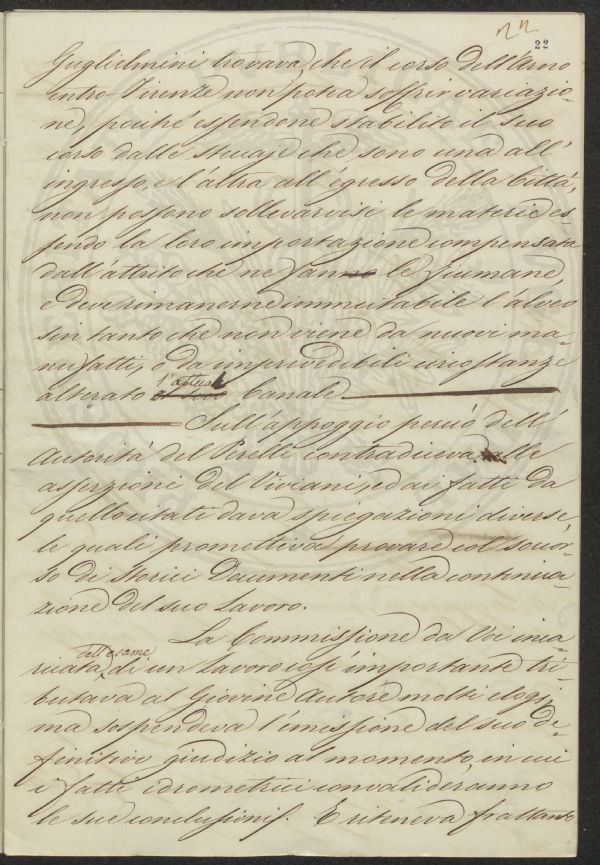 22
22
Guglielmini trovava che il corso dell'Arno
entro Firenze non potea soffrir variazio-
ne, poiché essendone stabilito il suo
corso dalle stecaje che sono una all'
ingresso, e l'altra all'egresso della Città,
non possono sollevarvisi le materie es-
sendo la loro importazione compensata
dall'attrito che ne fan le fiumane
e deve rimanerne immutabile l'alveo
sin tanto che non viene da nuovi ma-
nufatti, o da imprevedibili circostanze
alterato l'attual Canale.
Sull'appoggio perciò dell'
Autorità del Perelli contradiceva alle
asserzioni del Viviani, ed ai fatti da
quello citati dava spiegazioni diverse,
le quali prometteva provare col soccor-
so di Storici Documenti nella continua-
zione del suo Lavoro.
La Commissione da Voi inca
ricata dell'esame di un Lavoro così importante tri-
butava al Giovine Autore molti elogi,
ma sospendeva l'emissione del suo de-
finitivo giudizio al momento, in cui
i fatti idrometrici convalideranno
le sue conclusioni. E riteneva frattanto